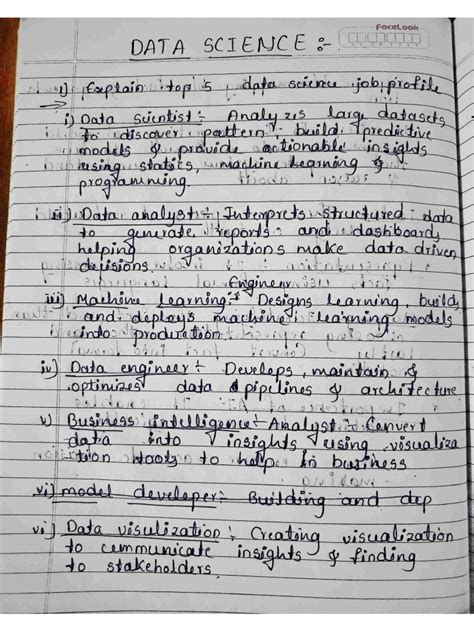 FaceLook
DATA SCIENCE :-
1) Explain top 5 data science job profile
→
i) Data scientist :- Analyzes large datasets
to discover pattern, build predictive
models & provide actionable insights
using statics, machine learning &
programming.
ii) Data analyst :- Interprets structured data
to generate reports and dashboard,
helping organizations make data driven
decisions.
Engineer
iii) Machine learning :- Designs learning, builds
and deploys machine learning models
into production
iv) Data engineer :- Develops, maintain &
optimizes data pipelines & architecture
v) Business intelligence Analyst :- Convert
data into insights using visualiza
tion tools to help in business
vi) model developer :- Building and dep
vi) Data visulization :- Creating visualization
to communicate insights & finding
to stakeholders.